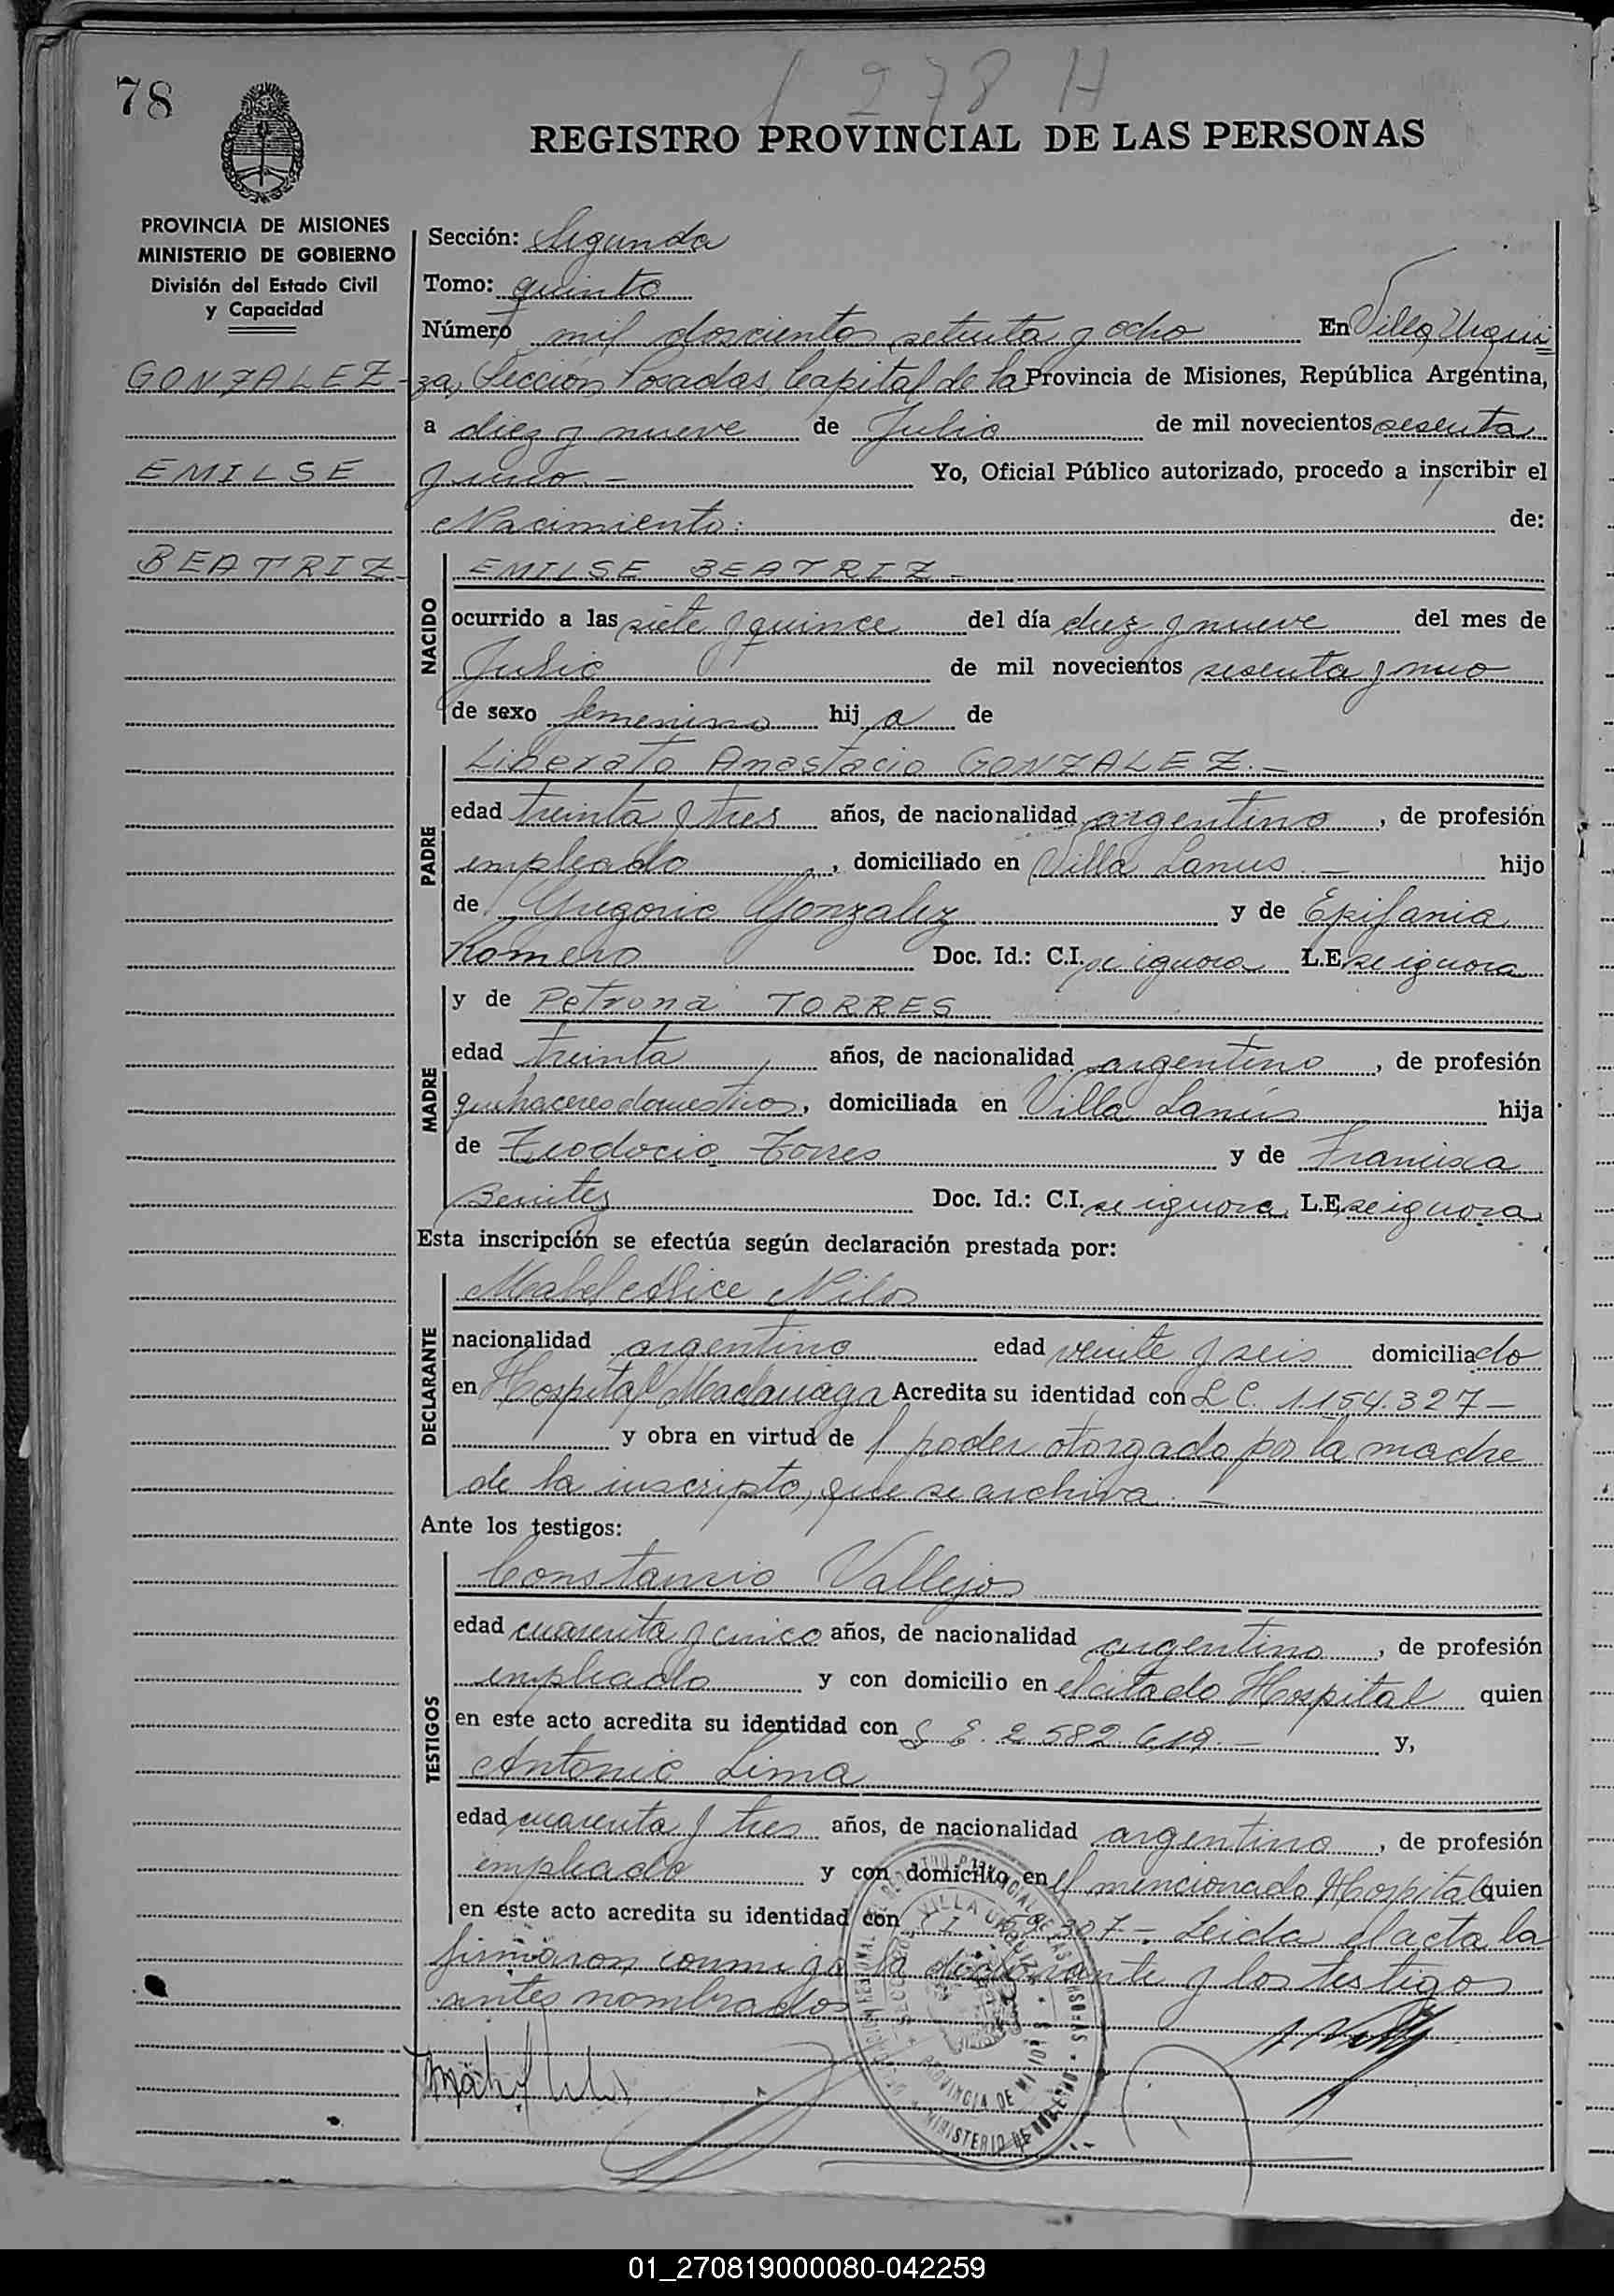 1278 H
78
REGISTRO PROVINCIAL DE LAS PERSONAS
PROVINCIA DE MISIONES
MINISTERIO DE GOBIERNO
División del Estado Civil
y Capacidad
GONZALEZ-
EMILSE
BEATRIZ-
Sección: Segunda
Tomo: quinto
Número mil doscientos setenta y ocho En Villa Urqui
za, Sección Posadas, Capital de la Provincia de Misiones, República Argentina,
a diez y nueve de Julio de mil novecientos sesenta
y uno.- Yo, Oficial Público autorizado, procedo a inscribir el
Nacimiento: de:
NACIDO
EMILSE BEATRIZ-
ocurrido a las siete y quince del día diez y nueve del mes de
Julio de mil novecientos sesenta y uno
de sexo femenino hija de
PADRE
Liberato Anastacio GONZALEZ.-
edad treinta y tres años, de nacionalidad argentino, de profesión
empleado, domiciliado en Villa Lanus.- hijo
de Gregorio Gonzalez y de Epifania
Romero Doc. Id.: C.I. se ignora L.E. se ignora
MADRE
y de Petrona TORRES
edad treinta años, de nacionalidad argentino, de profesión
quehaceres domesticos, domiciliada en Villa Lanús hija
de Teodocio Torres y de Francisca
Benitez Doc. Id.: C.I. se ignora L.E. se ignora
Esta inscripción se efectúa según declaración prestada por:
DECLARANTE
Mabel Alice Nilos
nacionalidad argentino edad veinte y seis domiciliado
en Hospital Madariaga Acredita su identidad con L C. 1154.327-
y obra en virtud de poder otorgado por la madre
de la inscripto, que se archiva.-
Ante los testigos:
TESTIGOS
Constancio Vallejos
edad cuarenta y cinco años, de nacionalidad argentino, de profesión
empleado y con domicilio en el citado Hospital quien
en este acto acredita su identidad con L E. 2 582.619.- y,
Antonio Lima
edad cuarenta y tres años, de nacionalidad argentino, de profesión
empleado y con domicilio en el mencionado Hospital quien
en este acto acredita su identidad con C I 307-. Leida el acta la
firmaron conmigo la declarante y los testigos
antes nombrados
VILLA URQUIZA
PROVINCIA DE MISIONES
MINISTERIO DE GOBIERNO
01_270819000080-042259